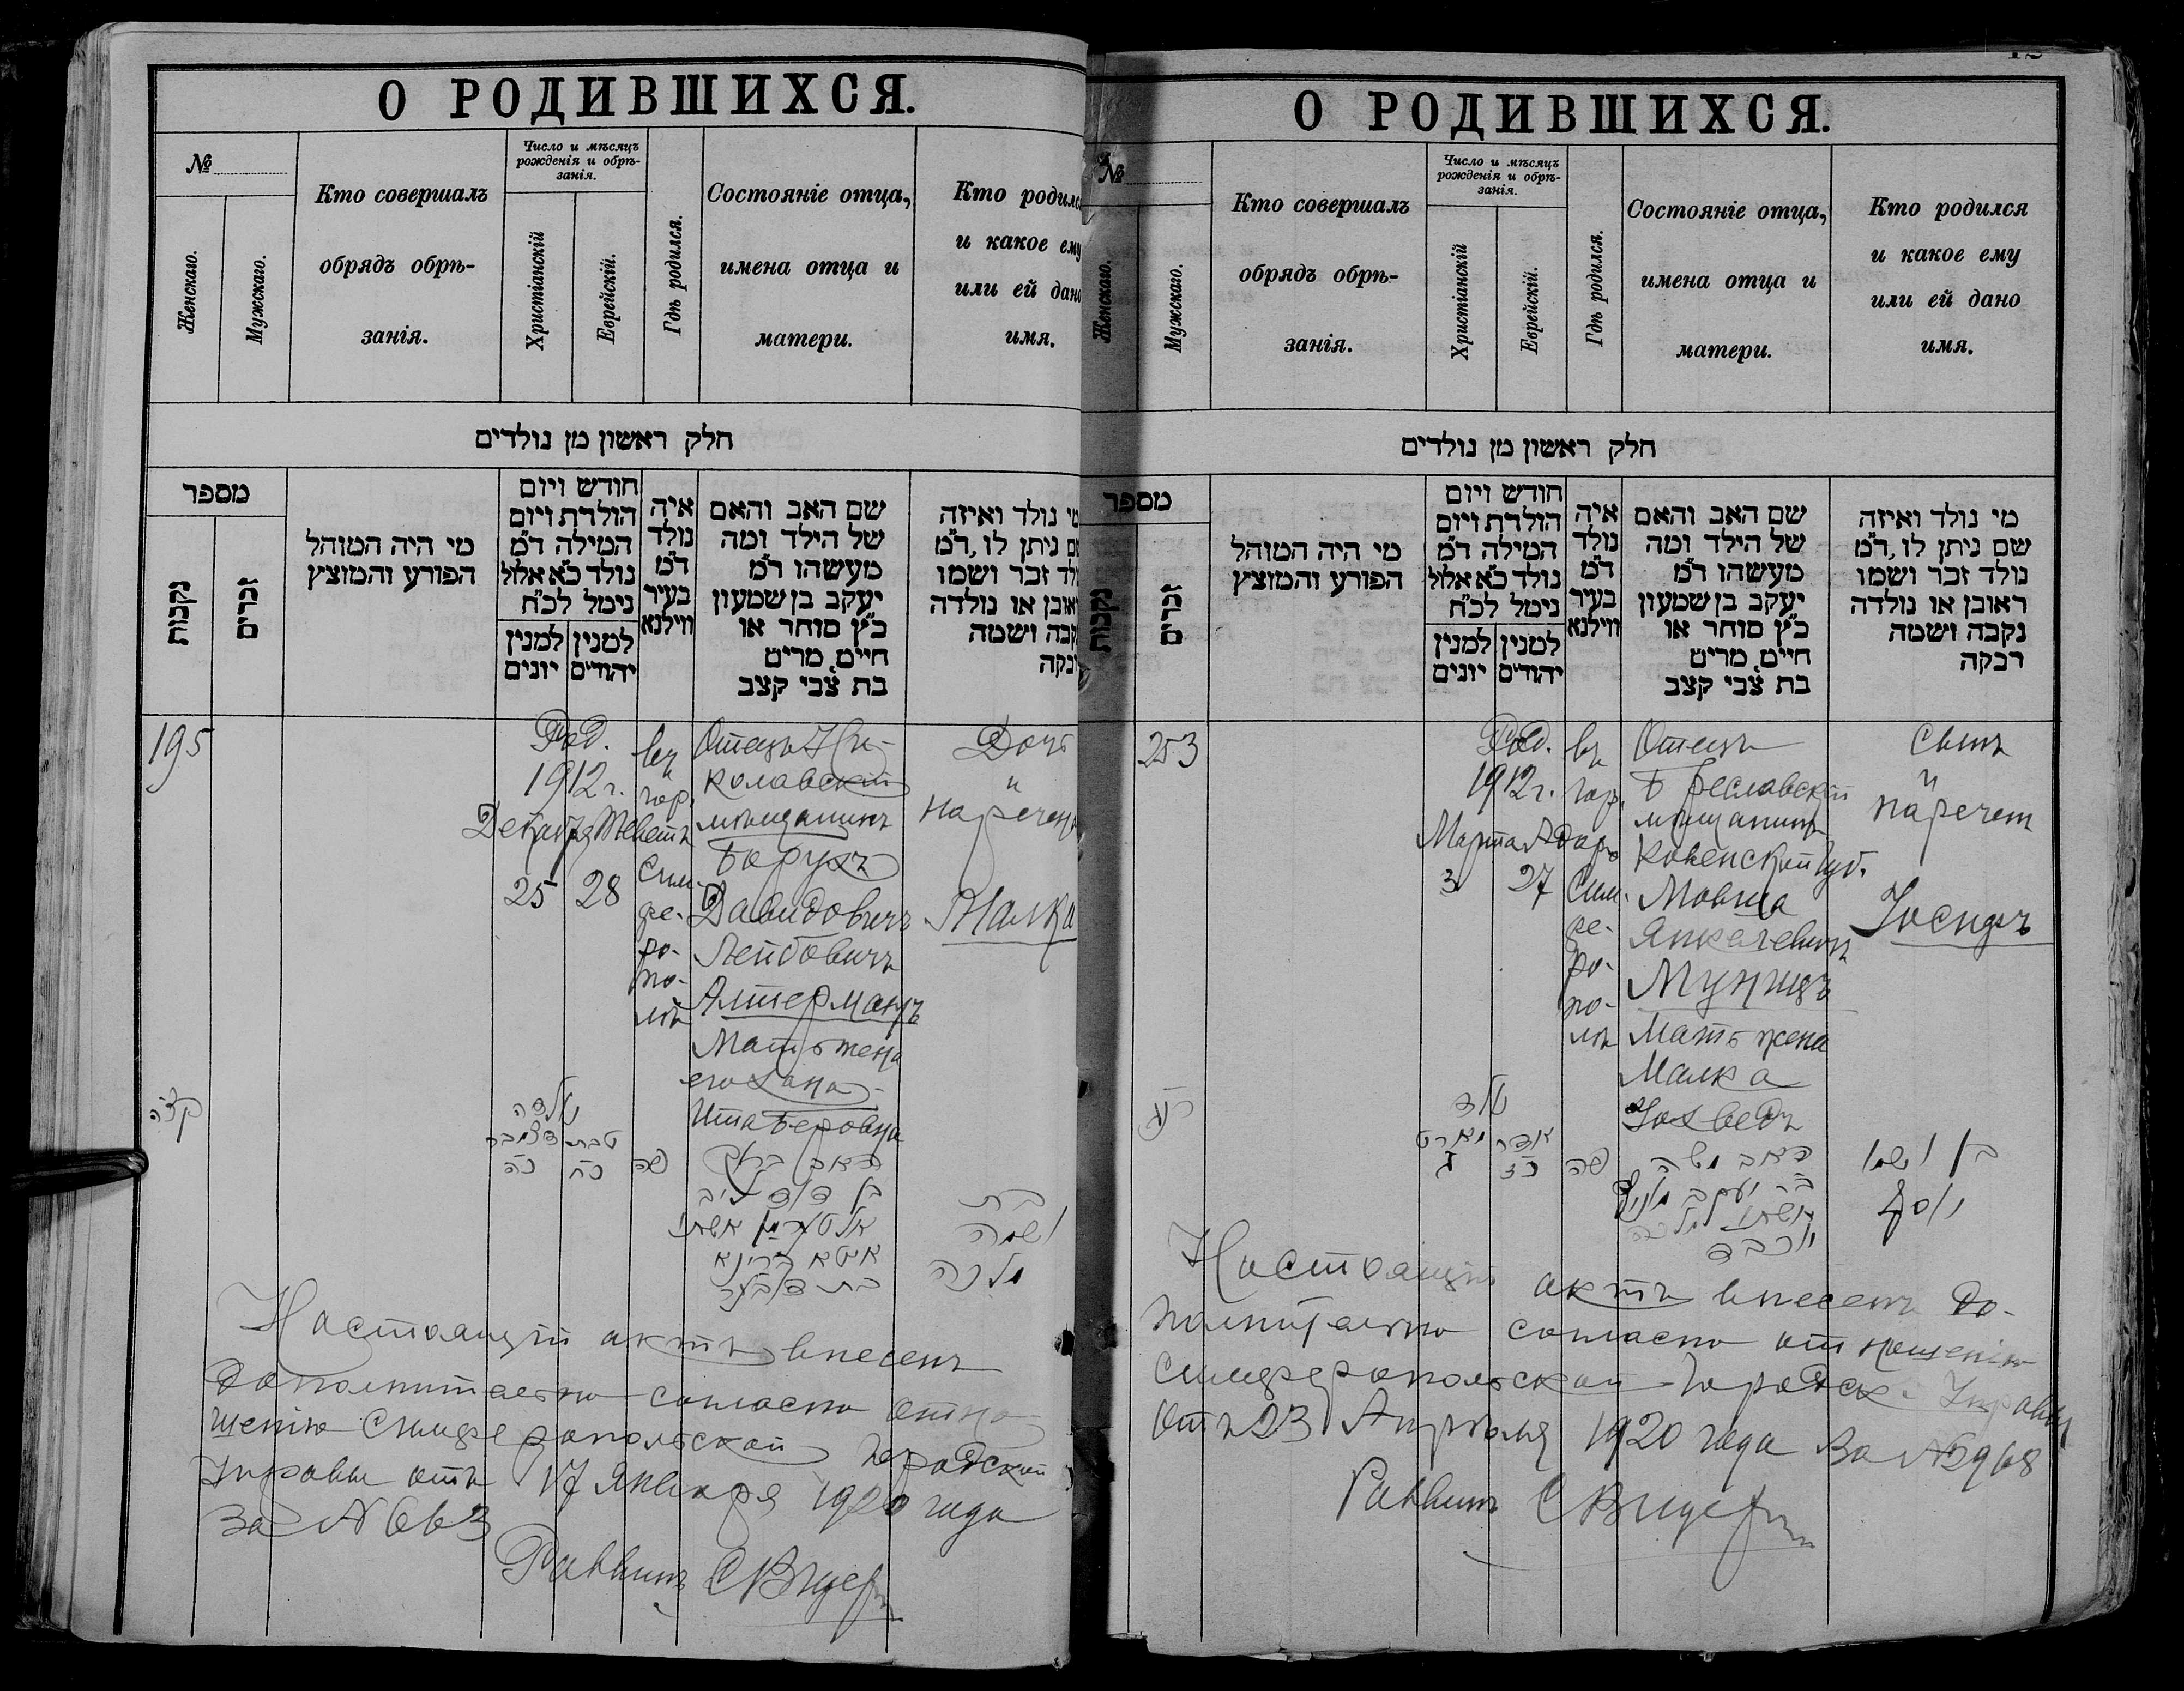 О РОДИВШИХСЯ.
№
Женскаго.
Мужскаго.
Кто совершалъ
обрядъ обрѣ-
занія.
Число и мѣсяцъ
рожденія и обрѣ-
занія.
Христіанскій
Еврейскій.
Гдѣ родился.
Состояніе отца,
имена отца и
матери.
Кто родился
и какое ему
или ей дано
имя.
חלק ראשון מן נולדים
מספר
נקבות
זכרים
מי היה המוהל
הפורע והמוצץ
חודש ויום
הולדת ויום
המילה ד״מ
נולד כ״א אלול
נימל לכ״ח
למנין למנין
יהודים יונים
איה
נולד
ד״מ
בעיר
ווילנא
שם האב והאם
של הילד ומה
מעשהו ד״מ
יעקב בן שמעון
כ״ץ סוחר או
חייט, מרים
בת צבי קצב
מי נולד ואיזה
שם ניתן לו, ד״מ
נולד זכר ושמו
ראובן או נולדה
נקבה ושמה
רבקה
195
Род.
1912 г.
Декабря Теветъ
25 28
въ
гор.
Сим-
фе-
ро-
по-
лѣ
Отецъ Ни-
колаевскій
мѣщанинъ
Борухъ
Давидовичъ
Лейбовичъ
Алтерманъ
Мать жена
его Хана-
Ита Беровна
Дочь
и
наречена
Малка
קצה
נולדה
טבת דצמבר
כח כה
פה
האב ברוך
בן דוד ליב
אלטערמן אשתו
בת
ושמה
מלכה
Настоящій актъ внесенъ
дополнительно согласно отно-
шенію Симферопольской Городской
Управы отъ 17 Января 1920 года
за № 663
Раввинъ
О РОДИВШИХСЯ.
№
Женскаго.
Мужскаго.
Кто совершалъ
обрядъ обрѣ-
занія.
Число и мѣсяцъ
рожденія и обрѣ-
занія.
Христіанскій
Еврейскій.
Гдѣ родился.
Состояніе отца,
имена отца и
матери.
Кто родился
и какое ему
или ей дано
имя.
חלק ראשון מן נולדים
מספר
נקבות
זכרים
מי היה המוהל
הפורע והמוצץ
חודש ויום
הולדת ויום
המילה ד״מ
נולד כ״א אלול
נימל לכ״ח
למנין למנין
יהודים יונים
איה
נולד
ד״מ
בעיר
ווילנא
שם האב והאם
של הילד ומה
מעשהו ד״מ
יעקב בן שמעון
כ״ץ סוחר או
חייט, מרים
בת צבי קצב
מי נולד ואיזה
שם ניתן לו, ד״מ
נולד זכר ושמו
ראובן או נולדה
נקבה ושמה
רבקה
253
Род.
1912 г.
Марта Адаръ
3 27
въ
гор.
Сим-
фе-
ро-
по-
лѣ
Отецъ
Бреславскій
мѣщанинъ
Ковенской губ.
Мовша
Янкелевичъ
Муницъ
Мать жена
Малка
Іохведъ
Сынъ
и
нареченъ
Іосифъ
נולד
אדר מארט
כז ג
פה
האב משה
בר יעקב
אשתו מלכה
יוכבד
בן ושמו
יוסף
Настоящій актъ внесенъ до-
полнительно согласно отношенію
Симферопольской Городск. Управы
отъ 23 Апрѣля 1920 года за №
Раввинъ